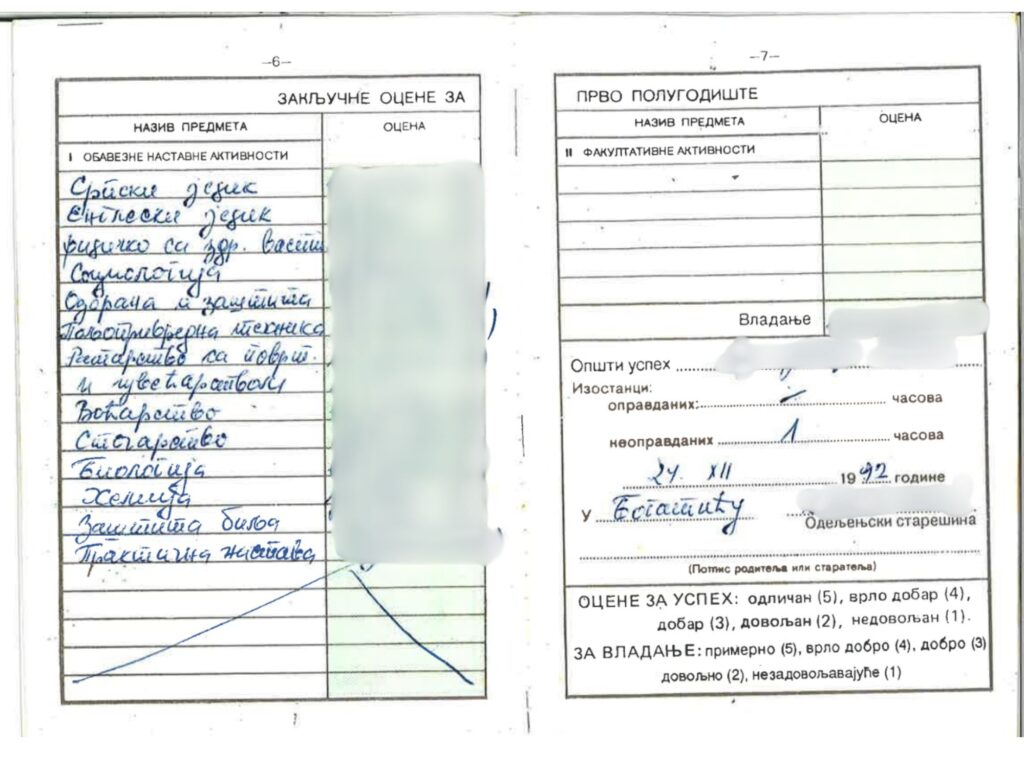 –6–
ЗАКЉУЧНЕ ОЦЕНЕ ЗА
НАЗИВ ПРЕДМЕТА ОЦЕНА
I ОБАВЕЗНЕ НАСТАВНЕ АКТИВНОСТИ
Српски језик
Енглески језик
физичко са здр. васпит
Социологија
Одбрана и заштита
Пољопривредна техника
Ратарство са поврт.
и цвећарством
Воћарство
Сточарство
Биологија
Хемија
Заштита биља
Практична настава
–7–
ПРВО ПОЛУГОДИШТЕ
НАЗИВ ПРЕДМЕТА ОЦЕНА
II ФАКУЛТАТИВНЕ АКТИВНОСТИ
Владање
Општи успех
Изостанци:
оправданих: – часова
неоправданих 1 часова
24. XII 1992 године
У Богатићу
Одељењски старешина
(Потпис родитеља или старатеља)
ОЦЕНЕ ЗА УСПЕХ: одличан (5), врло добар (4),
добар (3), довољан (2), недовољан (1).
ЗА ВЛАДАЊЕ: примерно (5), врло добро (4), добро (3)
довољно (2), незадовољавајуће (1)